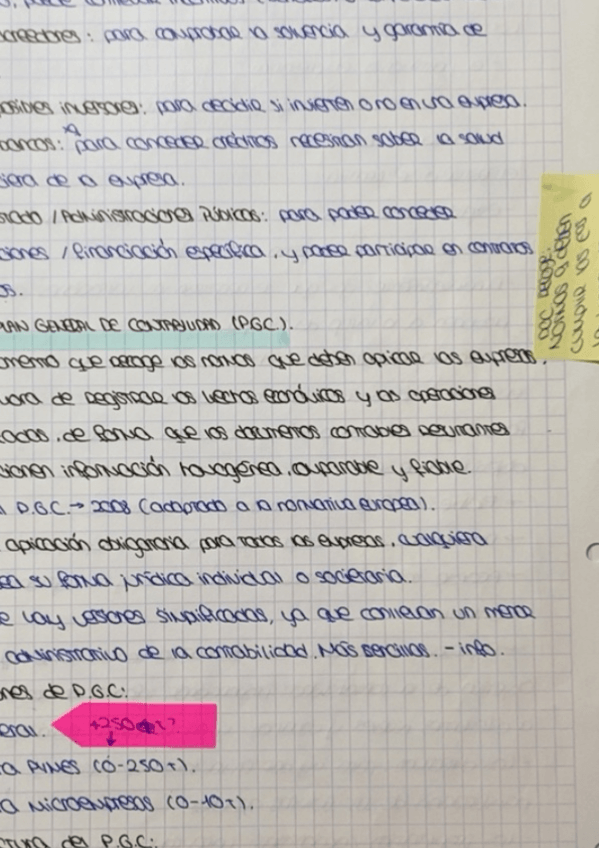 creedores: para comprobar la solvencia y garantía de
osibles inversores: para decidir si invierten o no en una empresa.
bancos: para conceder créditos necesitan saber la salud
ciera de la empresa.
stado / Administraciones Públicas: para poder conceder
ciones / financiación específica, y poder participar en contratos
os.
PLAN GENERAL DE CONTABILIDAD (PGC).
umento que recoge las normas que deben aplicar las empresas,
hora de registrar los hechos económicos y las operaciones
adas, de forma que los documentos contables resultantes
cionen información homogénea, comparable y fiable.
P.G.C. → 2008 (adaptado a la normativa europea).
aplicación obligatoria para todas las empresas, cualquiera
ea su forma jurídica individual o societaria.
e hay versiones simplificadas, ya que conllevan un menor
administrativo de la contabilidad. Más sencillas. - info.
nes de P.G.C:
eral. +250 t?
a PYMES (0-250 t).
a Microempresas (0-10 t).
ctura del P.G.C:
PGC recoge:
normas q deben
cumplir las es a